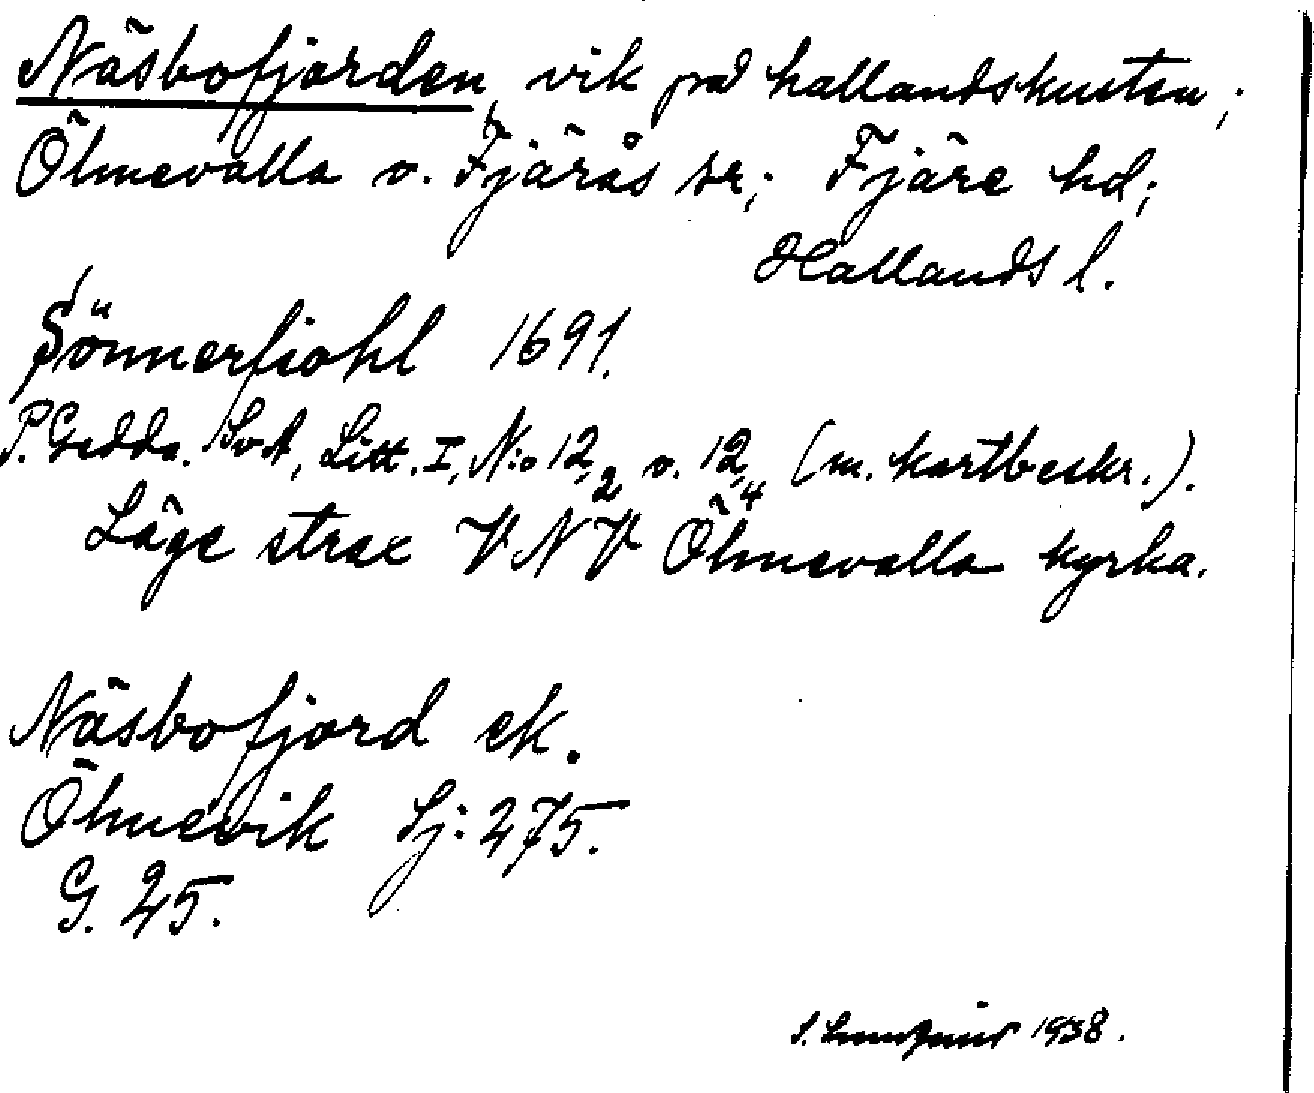 Näsbofjorden, vik på hallandskusten;
Ölmevalla o. Fjärås sr; Fjäre hd;
Hallands l.
Sönnerfiohl 1691.
P. Gedda. SvA, Litt. I, N:o 12,2 o. 12,4 (m. kartbeskr.).
Läge strax VNV Ölmevalla kyrka.
Näsbofjord ek.
Ölmevik Sj: 275.
G. 25.
S. 1938.